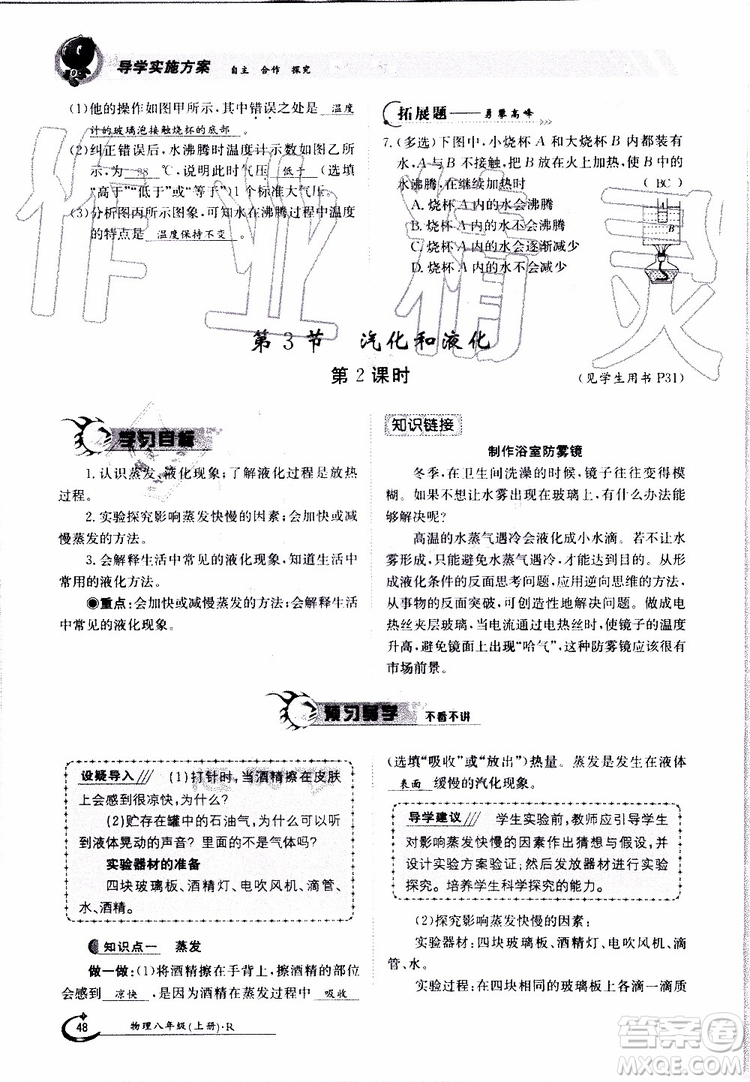 导学实施方案 自主 合作 探究
(1)他的操作如图甲所示,其中错误之处是 温度
计的玻璃泡接触烧杯的底部 。
(2)纠正错误后,水沸腾时温度计示数如图乙所
示,为 98 ℃,说明此时气压 低于 (选填
“高于”“低于”或“等于”)1个标准大气压。
(3)分析图丙所示图象,可知水在沸腾过程中温度
的特点是 温度保持不变 。
拓展题——勇攀高峰
7.(多选)下图中,小烧杯A和大烧杯B中都有
水、A与B不接触,把B放在火上加热,使B中
水沸腾,在继续加热时 ( BC )
A.烧杯A内的水会沸腾
B.烧杯A内的水不会沸腾
C.烧杯B内的水会逐渐减少
D.烧杯B内的水不会减少
A
B
第3节 汽化和液化
第2课时
(见学生用书P31)
学习目标
1.认识蒸发、液化现象;了解液化过程是放热
过程。
2.实验探究影响蒸发快慢的因素;会加快或减
慢蒸发的方法。
3.会解释生活中常见的液化现象,知道生活中
常用的液化方法。
◉重点:会加快或减慢蒸发的方法;会解释生活
中常见的液化现象。
知识链接
制作浴室防雾镜
冬季,在卫生间洗澡的时候,镜子往往变得模
糊。如果不想让水雾出现在玻璃上,有什么办法可以
解决呢?
高温的水蒸气遇冷会液化成小水滴。若不让水
雾形成,就要避免水蒸气遇冷,我们可以从水蒸气形
成液化条件的反面思考问题,应用逆向思维的方法,
从事物的反面入手,可创造性地解决问题。做成电
热丝夹层玻璃,当电流通过电热丝时,使镜子的温度
升高,避免镜面上出现“哈气”,这种防雾镜应该很有
市场前景。
预习导学 不看不讲
设疑导入 (1)打针时,当酒精擦在皮肤
上会感到很凉快,为什么?
(2)贮存在罐中的石油气,为什么可以听到
液体晃动的声音?里面的不是气体吗?
实验器材的准备
四块玻璃板、酒精灯、电吹风机、滴管、
水、酒精。
知识点一 蒸发
做一做:(1)将酒精擦在手背上,擦酒精的部位
会感到 凉快 ,是因为酒精在蒸发过程中 吸收
(选填“吸收”或“放出”)热量。蒸发是发生在液体
表面 缓慢的汽化现象。
导学建议 学生实验前,教师应引导学生
对影响蒸发快慢的因素作出猜想与假设,并
设计实验方案验证;然后发放器材进行实验
探究。培养学生科学探究的能力。
(2)探究影响蒸发快慢的因素:
实验器材:四块玻璃板、酒精灯、电吹风机、滴
管、水。
实验过程:在四块相同的玻璃上各滴一滴质
48 物理八年级(上册)·R
作业精灵
答案圈
MXQE.COM